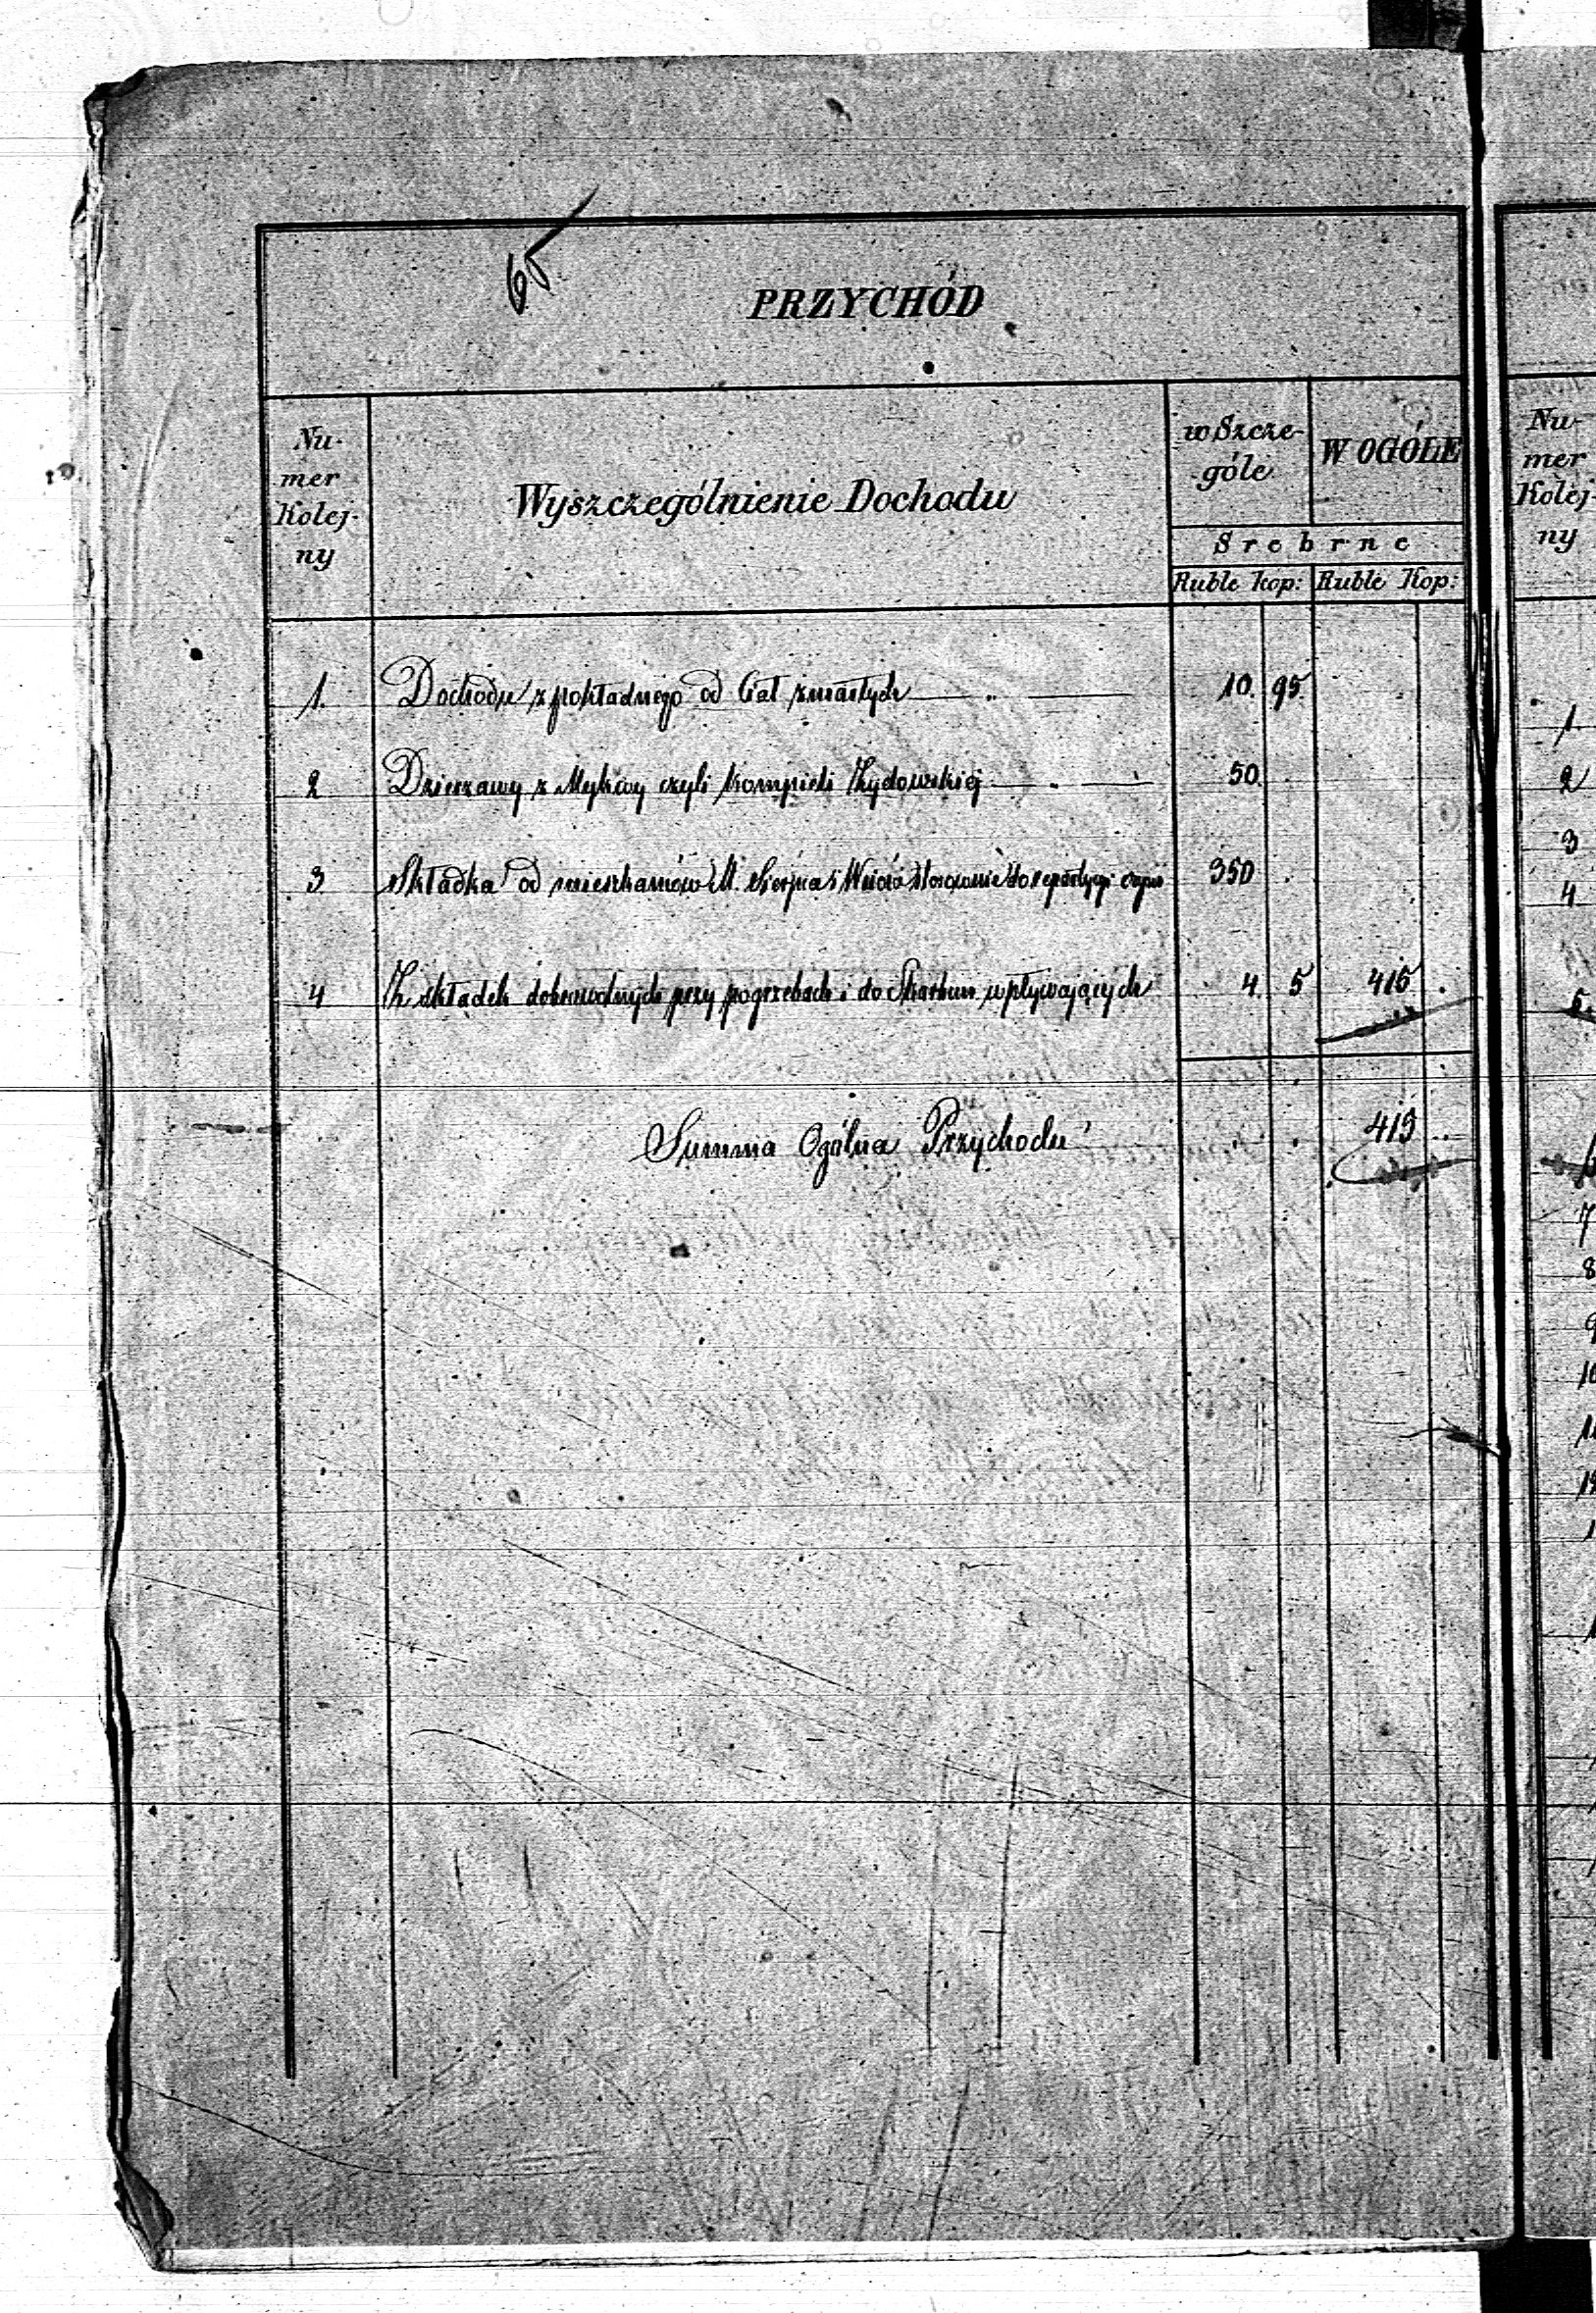 65
PRZYCHÓD
Numer Kolejny
Wyszczególnienie Dochodu
w Szczególe
W OGÓLE
Srebrne
Ruble kop: Ruble Kop:
1. Dochodu z pokładnego od Ciał zmarłych 10. 95.
2 Dzierzawy z Mykwy czyli kompieli Żydowskiej 50.
3 Składka od mieszkańców M. Sierpca i Wsiów stosownie do repartycyi 350
4 Z składek dobrowolnych przy pogrzebach i do Skarbun wpływających 4 5 415
Summa Ogólna Przychodu 415
Numer Kolejny
1
2
3
4
5.
7
8